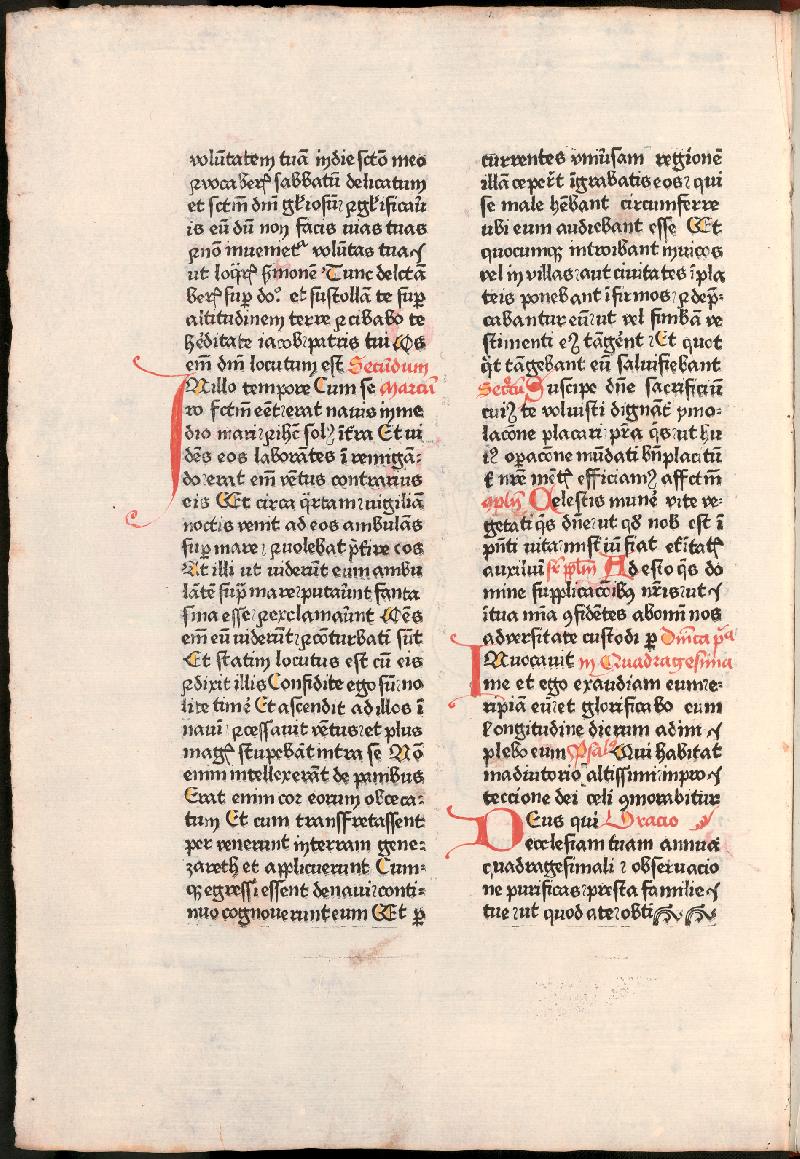 voluntatem tuā in die sctō meo
⁊ vocaberꝭ sabbatū delicatum
et sctm̄ dn̄i gl'iosū ⁊ gl'ificau'
is eū dū non facis uias tuas
⁊ nō inuenietr̄ volūtas tua
ut loqrꝭ sermonē Tunc delctā
berꝭ suꝑ do. et sustollā te suꝑ
altitudinem terre ⁊ cibabo te
hēditate iacob patris tui Os
em̄ dn̄i locutum est Secūdum
IN illo tempore Cum se marcū
ro fctm̄ eēt erat nauis in me
dio mari ⁊ ihc sol' ī t'ra Et ui
dēs eos laborātes ī remigā:
do erat em̄ vētus contrarius
eis Et circa q̄rtam uigiliā
noctis venit ad eos ambulās
suꝑ mare ⁊ uolebat p̄t'ire eos
At illi ut uiderūt eum ambu
lātē suꝑ mare putaūnt fanta
sma esse ⁊ exclamaūnt Oēs
em̄ eū uiderūt ⁊ cōturbati sūt
Et statim locutus est cū eis
⁊ dixit illis Confidite ego sū no
lite timē Et ascendit ad illos ī
nauī ⁊ cessauit vētus et plus
magꝭ stupebāt intra se Nō
enim intellexerāt de panibus
Erat enim cor eorum obceca:
tum Et cum transfretassent
per venerunt in terram gene:
zareth et applicuerunt Cum:
qꝫ egressi essent de naui conti:
nuo cognouerunt eum Et ꝑ
currentes vniūsam regionē
illā ceper̄t ī grabatis eos qui
se male hēbant circumferre
ubi eum audiebant esse Et
quocumqꝫ introibant in uicos
vel in villas aut ciuitates ī pla
teis ponebant īfirmos ⁊ dep̄:
cabantur eū ut vel fimbā ve
stimenti eꝫ tāgēnt Et quot
q̄t tāgebant eū salui fiebant
Sectū Suscipe dn̄e sacrificiū
cuiꝫ te voluisti dignāt' ymo:
lacōne placari pr̄a q̄s ut hu
iꝫ opacōne mūdati bn̄placitū
t' nr̄e mētꝭ efficiamꝫ affctm̄
9plm̄ Celestis munē vite ve:
getati q̄s dn̄e ut qd̄ nob est ī
pn̄ti uita mist'iū fiat et'nitatꝭ
auxiluī sr̄ pplm̄ Ad esto q̄s do
mine supplicacōibꝫ nr̄is ut
ī tua mīa 9fidētes ab om̄i nos
adversitate custodi ꝑ Dn̄ica pa
INuocauit in Quadragesima
me et ego exaudiam eum e:
ripiā eū et glorificabo eum
longitudine dierum adim
plebo eum Psal9 Qui habitat
in adiutorio altissimi in pro
teccione dei celi 9morabitur
DEus qui Oracio
ecclesiam tuam annua
quadragesimali observacio
ne purificas presta familie
tue ut quod a te obti